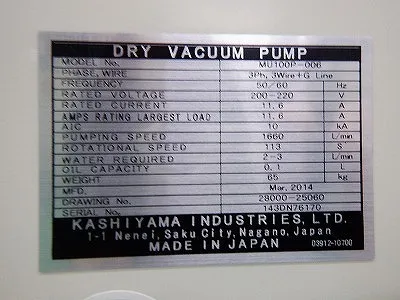 DRY VACUUM PUMP
MODEL No. MU100P-006
PHASE, WIRE 3Ph, 3Wire+G Line
FREQUENCY 50/60 Hz
RATED VOLTAGE 200-220 V
RATED CURRENT 11.6 A
AMPS RATING LARGEST LOAD 11.6 A
AIC 10 kA
PUMPING SPEED 1660 L/min
ROTATIONAL SPEED 113 S
WATER REQUIRED 2-3 L/min
OIL CAPACITY 0.1 L
WEIGHT 65 kg
MFD. Mar, 2014
DRAWING No. 28000-25060
SERIAL No. 143DN76170
KASHIYAMA INDUSTRIES, LTD.
1-1 Nenei, Saku City, Nagano, Japan
MADE IN JAPAN 03912-10700